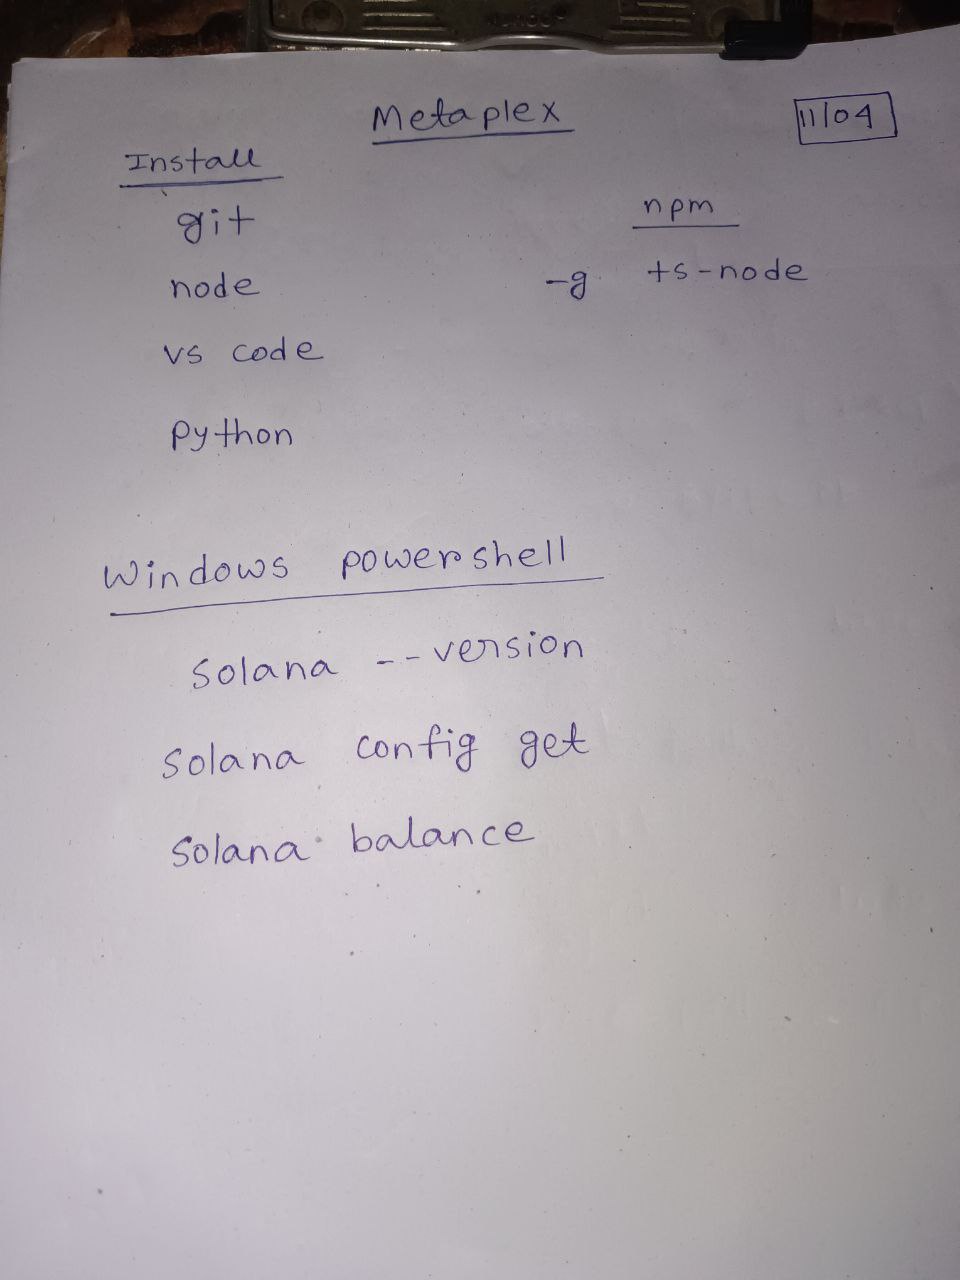 Metaplex
11/04
Install
git
node
vs code
python
npm
-g ts-node
Windows powershell
solana --version
solana config get
solana balance